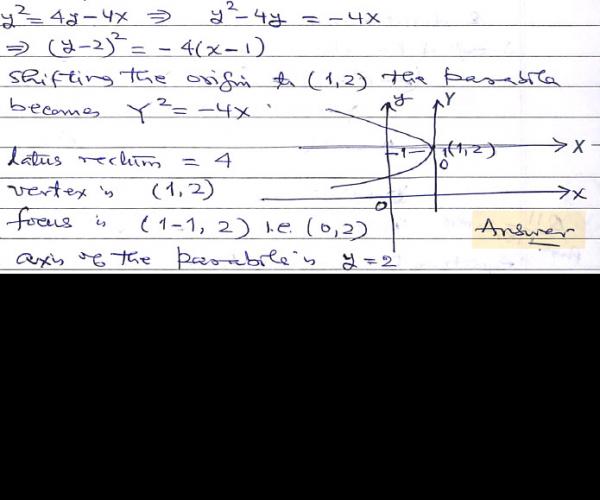 y² = 4y - 4x ⇒ y² - 4y = -4x
⇒ (y-2)² = -4(x-1)
Shifting the origin to (1,2) the parabola
becomes Y² = -4X
latus rectum = 4
vertex is (1,2)
focus is (1-1, 2) i.e. (0,2)
axis of the parabola is y = 2
y Y
-1- (1,2) X
0
0 x
Answer